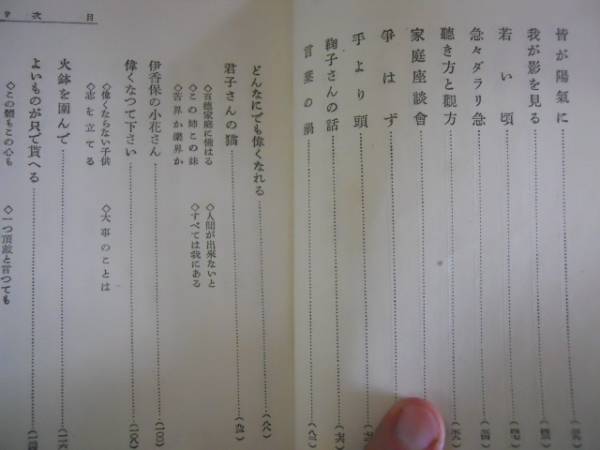 皆が陽氣に
我が影を見る
若い頃
急々ダラリ急
聽き方と觀方
家庭座談會
爭はず
手より頭
鞠子さんの話
言葉の禍
目次
どんなにでも偉くなれる
(八八)
◇百德家庭に備はる
◇人間が出來ないと
◇この姉この妹
◇すべては我にある
◇苦界か樂界か
君子さんの猫
伊香保の小花さん
(一〇〇)
偉くなつて下さい
◇偉くならない子供
◇大事のことは
◇志を立てる
火鉢を圍んで
よいものが只で貰へる
◇この顏もこの心も
◇一つ頂戴と言つても